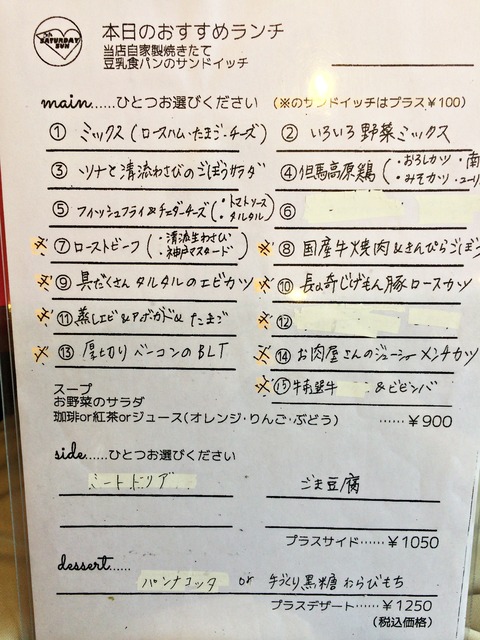 THE SATURDAY SUN
本日のおすすめランチ
当店自家製焼きたて
豆乳食パンのサンドイッチ
main......ひとつお選びください (※のサンドイッチはプラス¥100)
① ミックス(ロースハム・たまご・チーズ)
② いろいろ野菜ミックス
③ ツナと清流わさびのごぼうサラダ
④ 但馬高原鶏(・おろしカツ ・南 ・みそカツ ・ユーリ
⑤ フィッシュフライ&チェダーチーズ(・トマトソース ・タルタル)
⑥
※⑦ ローストビーフ(・清流生わさび ・神戸マスタード)
※⑧ 国産牛焼肉&きんぴらごぼう
※⑨ 具だくさんタルタルのエビカツ
※⑩ 長崎じげもん豚ロースカツ
※⑪ 蒸しエビ&アボガド&たまご
※⑫
※⑬ 厚切りベーコンのBLT
※⑭ お肉屋さんのジューシーメンチカツ
※⑮ 牛 &ビビンバ
スープ
お野菜のサラダ
珈琲or紅茶orジュース(オレンジ・りんご・ぶどう) ......¥900
side......ひとつお選びください
ミートドリア
ごま豆腐
プラスサイド......¥1050
dessert......
パンナコッタ or 手づくり黒糖わらびもち
プラスデザート......¥1250
(税込価格)